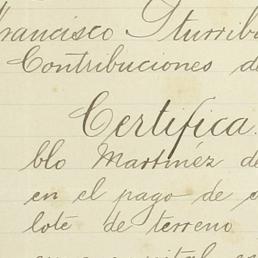 Francisco Yturri
Contribuciones de
Certifica
blo Martinez de
en el pago de
lote de terreno